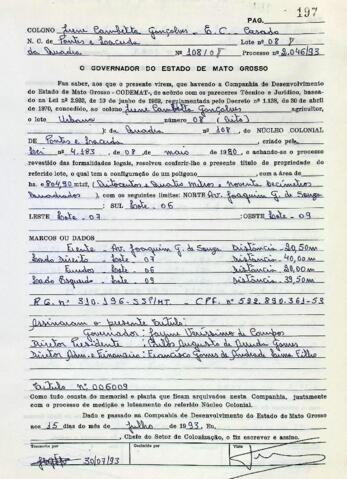 PAG. 197
COLONO Irene Cambetta Gonçalves - E. C. Casado
N. C. de Pontes e Lacerda Lote nº 08
da Quadra Nº 108/08 Processo 2.046/93
O GOVERNADOR DO ESTADO DE MATO GROSSO
Faz saber, aos que o presente virem, que havendo a Companhia de Desenvolvimento
do Estado de Mato Grosso - CODEMAT-, de acordo com os pareceres Técnico e Jurídico, basea-
do na Lei nº 2.922, de 13 de junho de 1969, regulamentado pelo Decreto nº 1.138, de 30 de abril
de 1970, concedido, ao colono Irene Cambetta Gonçalves agricultor,
o lote Urbano número 08 (oito)
) da Quadra nº 108, DO NÚCLEO COLONIAL
DE Pontes e Lacerda criado pela
Lei nº 4.183, de 08 de maio 1980, e achando-se o processo
revestido das formalidades legais, resolveu conferir-lhe o presente título de propriedade do
referido lote, o qual tem a configuração de um polígono com a área de
hs. e 804,90 mts2 (Oitocentos e Quatro metros e noventa decímetros
Quadrados) com os seguintes limites: NORTE Av. Joaquim G. de Souza
SUL Lote - 06
LESTE Lote - 07 OESTE Lote - 09
MARCOS OU DADOS
Frente - Av. Joaquim G. de Souza Distância - 20,50m
Lado Direito - Lote - 07 Distância - 40,00m
Fundos - Lote - 06 Distância - 20,00m
Lado Esquerdo - Lote - 09 Distância - 39,50m
R.G. nº 310.196-SSP/MT. - CPF. nº 522.890.361-53
Assinaram o presente título:
Governador: Jayme Veríssimo de Campos
Diretor Presidente: Augusto de Arruda Gomes
Diretor Adm. e Financeiro: Francisco Gomes de Andrade Lima Filho
Título Nº 006009
Como tudo consta do memorial e planta que ficam arquivados nesta Companhia, juntamente
com o processo de medição e loteamento do referido Núcleo Colonial.
Dado e passado na Companhia de Desenvolvimento do Estado de Mato Grosso
aos 15 dias do mês de julho de 1993. Eu,
, Chefe do Setor de Colonização, o fiz escrever e assino.
Transcrito por Conferido por Visto
30/07/93